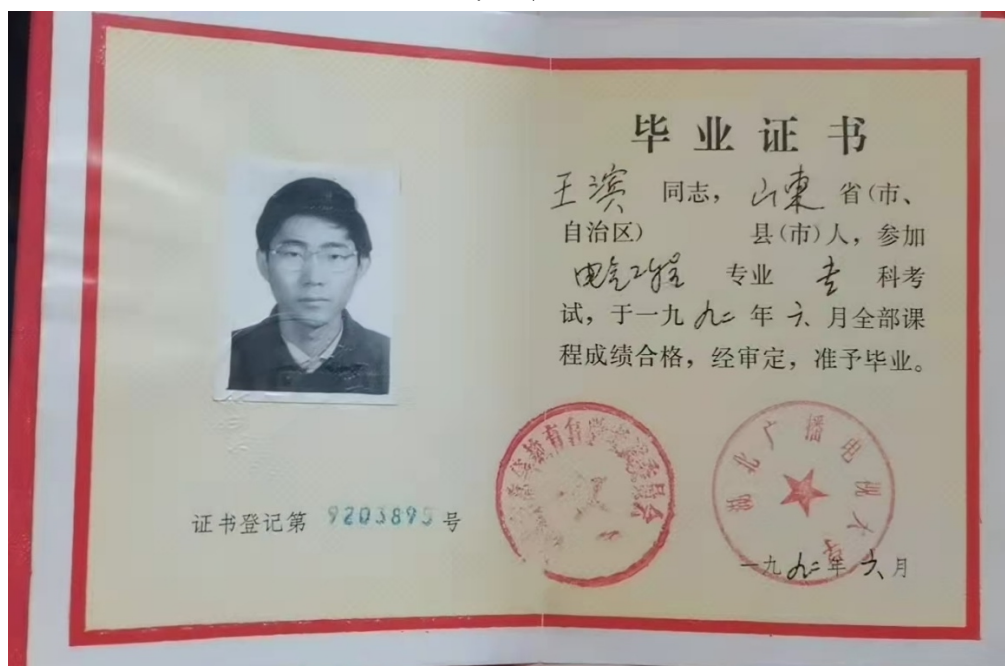 毕业证书
王滨 同志，山東省(市、
自治区) 县(市)人，参加
电气工程 专业 专 科考
试，于一九九二年六月全部课
程成绩合格，经审定，准予毕业。
证书登记第 9203895 号
高等教育自学考试委员会
湖北广播电视大学
一九九二年六月